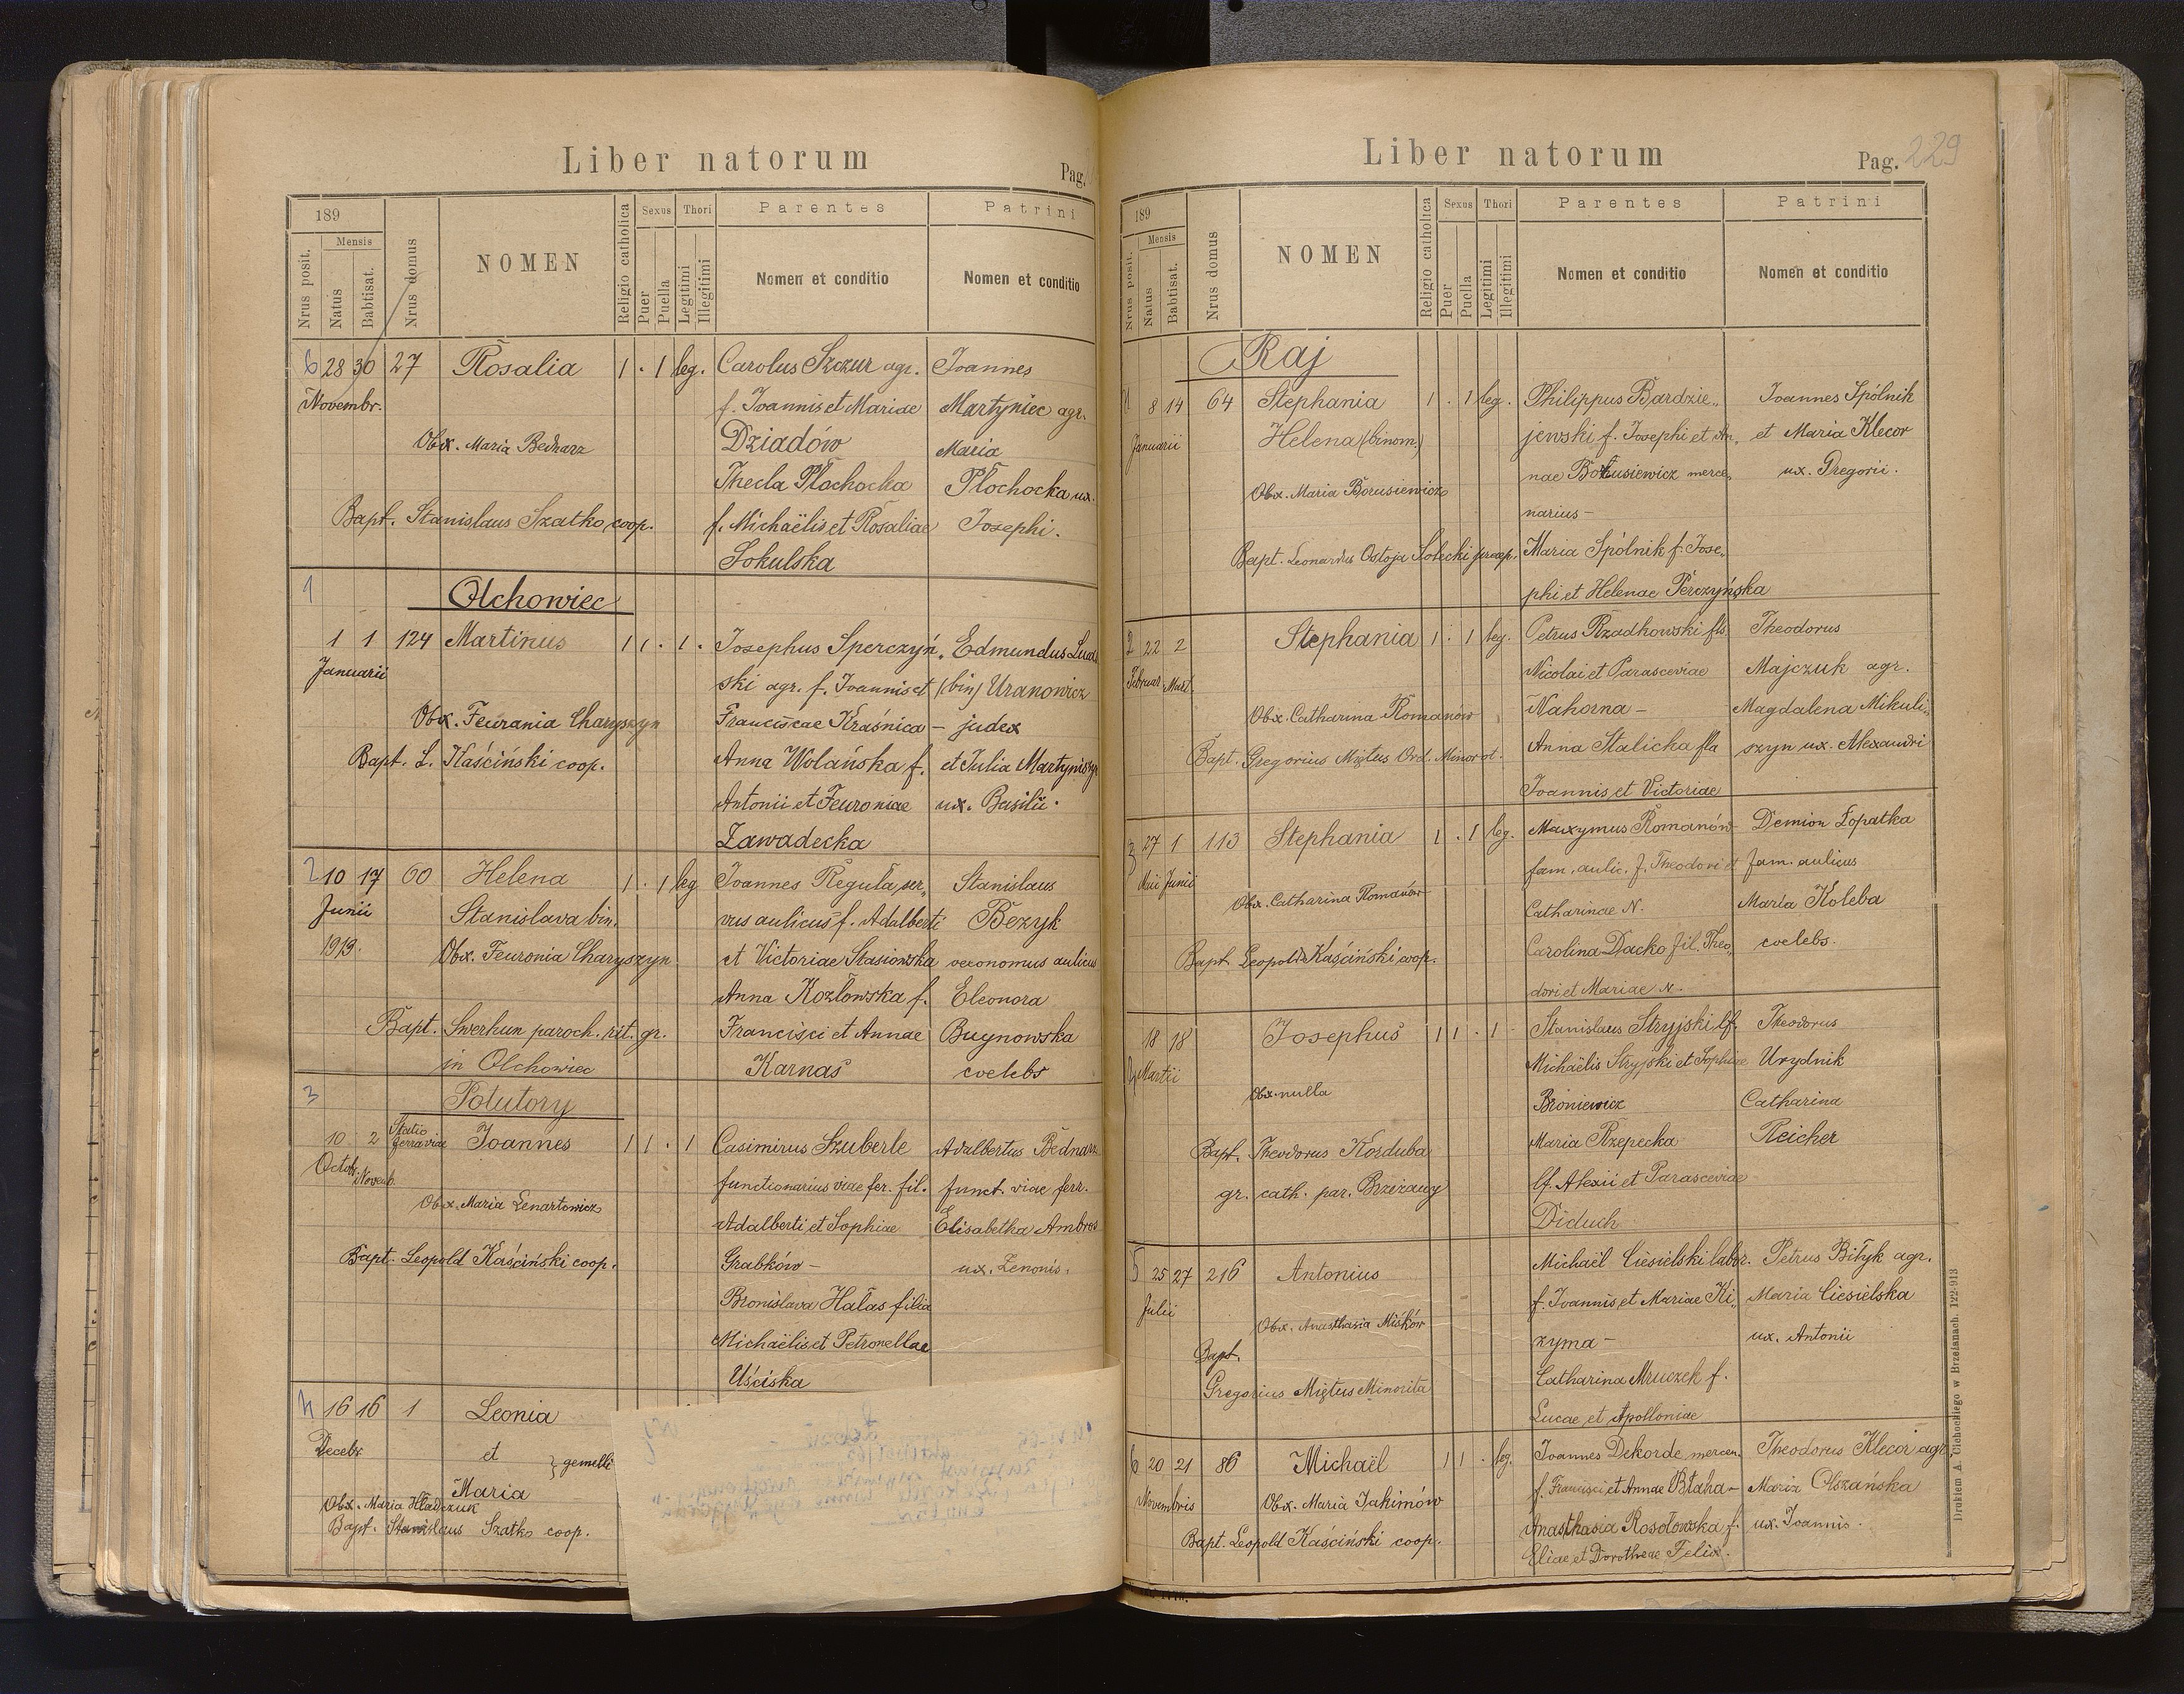 Liber natorum
Pag.
189
Nrus posit.
Mensis
Natus
Babtisat.
Nrus domus
NOMEN
Religio catholica
Sexus
Puer
Puella
Thori
Legitimi
Illegitimi
Parentes
Nomen et conditio
Patrini
Nomen et conditio
6 28 30 27 Rosalia 1 . 1 leg. Carolus Szczur agr. Joannes
Novembr. f. Joannis et Mariae Martyniec agr.
Obx. Maria Bednarz Dziadów Maria
Thecla Płochocka Płochocka ux.
Bapt. Stanislaus Szatko coop. f. Michaëlis et Rosaliae Josephi.
Sokulska
1 Olchowiec
1 1 124 Martinus 1 1 . 1 . Josephus Sperczyń„ Edmundus
Januarii ski agr. f. Joannis et (bin) Uranowicz
Obx. Feurania Charyszyn Franciscae Kraśnica – judex
Bapt. L. Kaściński coop. Anna Wolańska f. et Julia Martyniszyn
Antonii et Feuroniae ux. Basilii.
Zawadecka
2 10 17 60 Helena 1 . 1 leg Joannes Reguła, ser„ Stanislaus
Junii Stanislava bin. vus aulicus f. Adalberti Bezyk
1913. Obx. Feuronia Charyszyn et Victoriae Stasiowska oeconomus aulicus
Anna Kozłowska f. Eleonora
Bapt. Swerhun paroch. rit. gr. Francisci et Annae Bugnowska
in Olchowiec Karnaś coelebs
3 Potutory
10 2 Statio ferraviae Joannes 1 1 . 1 Casimirus Szuberle Adalbertus Bednarz
Octob. Novemb. functionarius viae fer. fil. funct. viae ferr.
Obx. Maria Lenartowicz Adalberti et Sophiae Elisabetha Ambros
Bapt. Leopold Kaściński coop. Grabków – ux. Zenonis.
Bronislava Hałas filia
Michaëlis et Petronellae
Uściska
4 16 16 1 Leonia
Decebr. et } gemelli
Maria
Obx. Maria Hładczuk
Bapt. Stanislaus Szatko coop.
Liber natorum
Pag. 229
189
Nrus posit.
Mensis
Natus
Babtisat.
Nrus domus
NOMEN
Religio catholica
Sexus
Puer
Puella
Thori
Legitimi
Illegitimi
Parentes
Nomen et conditio
Patrini
Nomen et conditio
Raj
1 8 14 64 Stephania 1 . 1 leg. Philippus Bardzie„ Joannes Spólnik
Januarii Helena (binom.) jewski f. Josephi et An„ et Maria Klecor
nae Borusiewicz merce„ ux. Gregorii.
Obx. Maria Borusiewicz narius –
Bapt. Leonardus Ostoja Solecki praep. Maria Spólnik f. Jose„
phi et Helenae Perczyńska
2 22 2 Stephania 1 . 1 leg. Petrus Rzadkowski fls Theodorus
Februar. Mart. Nicolai et Parasceviae Majczuk agr.
Obx. Catharina Romanów Nahorna – Magdalena Mikuli„
Bapt. Gregorius Miętus Ord. Minorot. Anna Stalicka fla szyn ux. Alexandri
Joannis et Victoriae
3 27 1 113 Stephania 1 . 1 leg. Maxymus Romanów Demion Łopatka
Maii Junii fam. aulic. f. Theodori et fam. aulicus
Obx. Catharina Romanów Catharinae N. Maria Koleba
Bapt Leopold Kaściński coop. Carolina Dacko fil. Theo„ coelebs.
dori et Mariae N.
4 18 18 Josephus 1 1 . 1 Stanislaus Stryjski lf. Theodorus
Martii Michaëlis Stryjski et Sophiae Urydnik
Obx. nulla Broniewicz Catharina
Bapt. Theodorus Korduba Maria Rzepecka Reicher
gr. cath. par. Brzezany lf. Alexii et Parasceviae
Diduch
5 25 27 216 Antonius Michaël Ciesielski labor. Petrus Biłyk agr.
Julii f. Joannis et Mariae Ki„ Maria Ciesielska
Obx. Anasthasia Miśków zyma – ux. Antonii
Bapt. Catharina Mruczek f.
Gregorius Miętus Minorita Lucae et Apolloniae
6 20 21 86 Michaël 1 1 . leg. Joannes Dekorde mercen. Theodorus Klecor agr.
Novembris f. Francisci et Annae Błaha – Maria Olszańska
Obx. Maria Jakimów Anasthasia Rosołowska f. ux. Joannis.
Bapt. Leopold Kaściński coop. Eliae et Dorotheae Felix.
Drukiem A. Cichockiego w Brzeżanach. 122-913